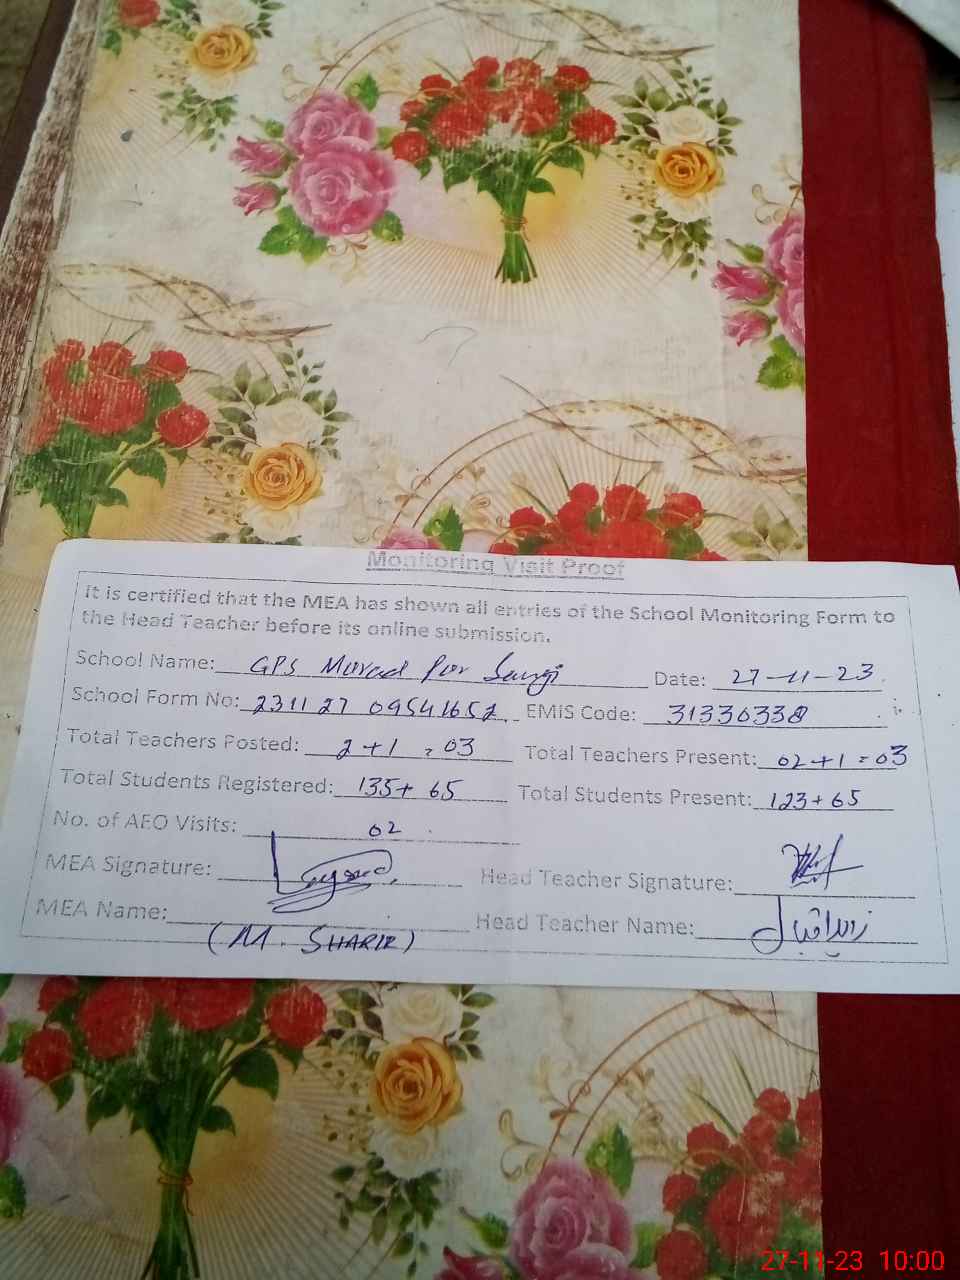 Monitoring Visit Proof
It is certified that the MEA has shown all entries of the School Monitoring Form to
the Head Teacher before its online submission.
School Name: GPS Murad Pur Sangi Date: 27-11-23
School Form No: 231127 09541652 EMIS Code: 31330338
Total Teachers Posted: 2+1 = 03 Total Teachers Present: 02+1=03
Total Students Registered: 135+ 65 Total Students Present: 123+65
No. of AEO Visits: 02
MEA Signature: Head Teacher Signature:
MEA Name: Head Teacher Name: اقبال
(M. SHARIF)
27-11-23 10:00